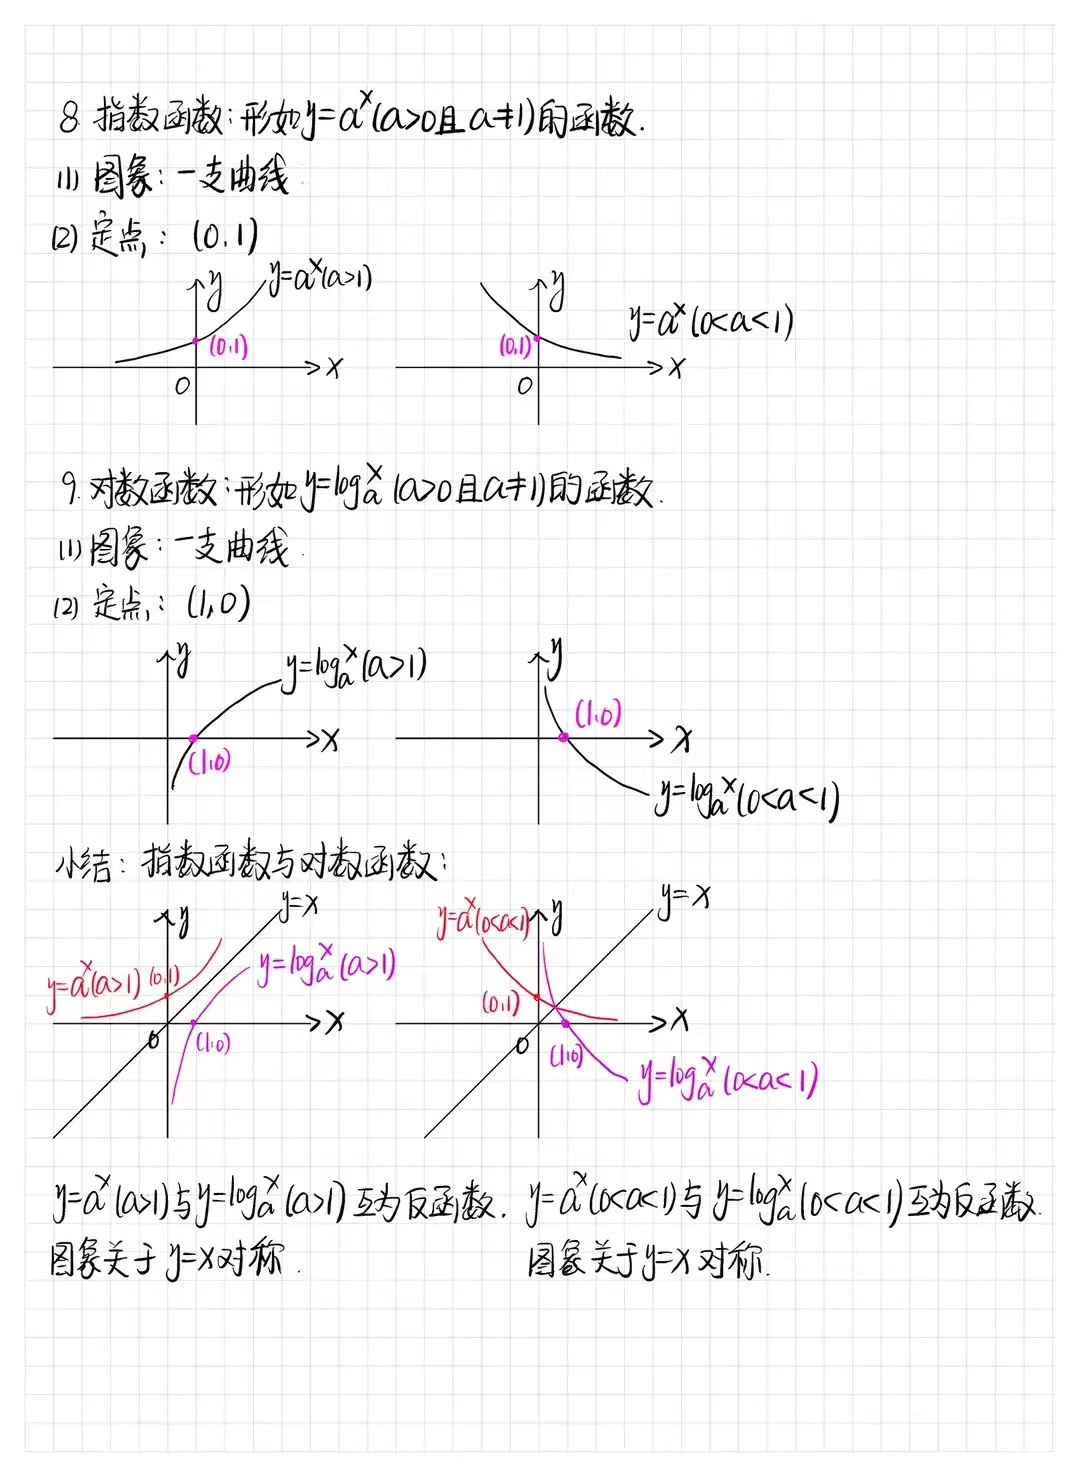 8. 指数函数:形如y=aˣ(a>0且a≠1)的函数.
(1) 图象:一支曲线.
(2) 定点:(0,1)
y y=aˣ(a>1) y y=aˣ(0<a<1)
(0,1) (0,1)
x x
0 0
9. 对数函数:形如y=logₐˣ(a>0且a≠1)的函数.
(1) 图象:一支曲线.
(2) 定点:(1,0)
y y=logₐˣ(a>1) y
(1,0)
x x
(1,0)
y=logₐˣ(0<a<1)
小结:指数函数与对数函数:
y y=x y=aˣ(0<a<1) y y=x
y=aˣ(a>1) (0,1) y=logₐˣ(a>1) (0,1)
x x
0 (1,0) 0 (1,0)
y=logₐˣ(0<a<1)
y=aˣ(a>1)与y=logₐˣ(a>1)互为反函数.
图象关于y=x对称.
y=aˣ(0<a<1)与y=logₐˣ(0<a<1)互为反函数.
图象关于y=x对称.